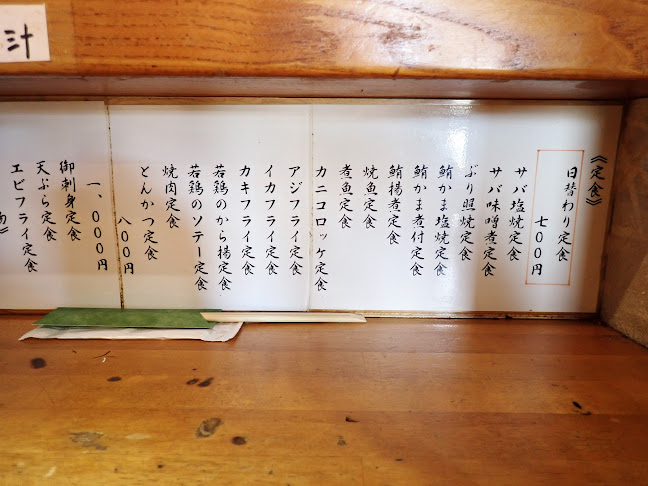 《定食》
日替わり定食
七〇〇円
サバ塩焼定食
サバ味噌煮定食
ぶり照焼定食
鮪かま塩焼定食
鮪かま煮付定食
鮪揚煮定食
焼魚定食
煮魚定食
カニコロッケ定食
アジフライ定食
イカフライ定食
カキフライ定食
若鶏のから揚定食
若鶏のソテー定食
焼肉定食
とんかつ定食
八〇〇円
一、〇〇〇円
御刺身定食
天ぷら定食
エビフライ定食
汁